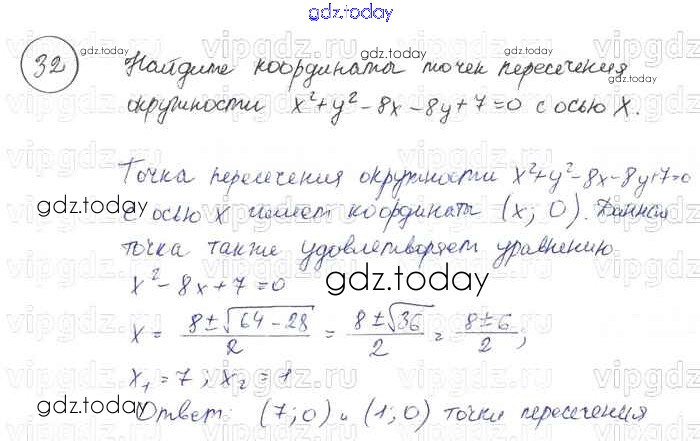 gdz.today
32
Найдите координаты точек пересечения
окружности x²+y²-8x-8y+7=0 с осью X.
Точка пересечения окружности x²+y²-8x-8y+7=0
с осью X имеет координаты (x; 0). Данная
точка также удовлетворяет уравнению
x²-8x+7=0
x = (8±√(64-28))/2 = (8±√36)/2 = (8±6)/2;
x₁=7; x₂=1
Ответ: (7;0) и (1;0) точки пересечения
gdz.today
gdz.today
gdz.today
gdz.today
gdz.today
gdz.today
gdz.today